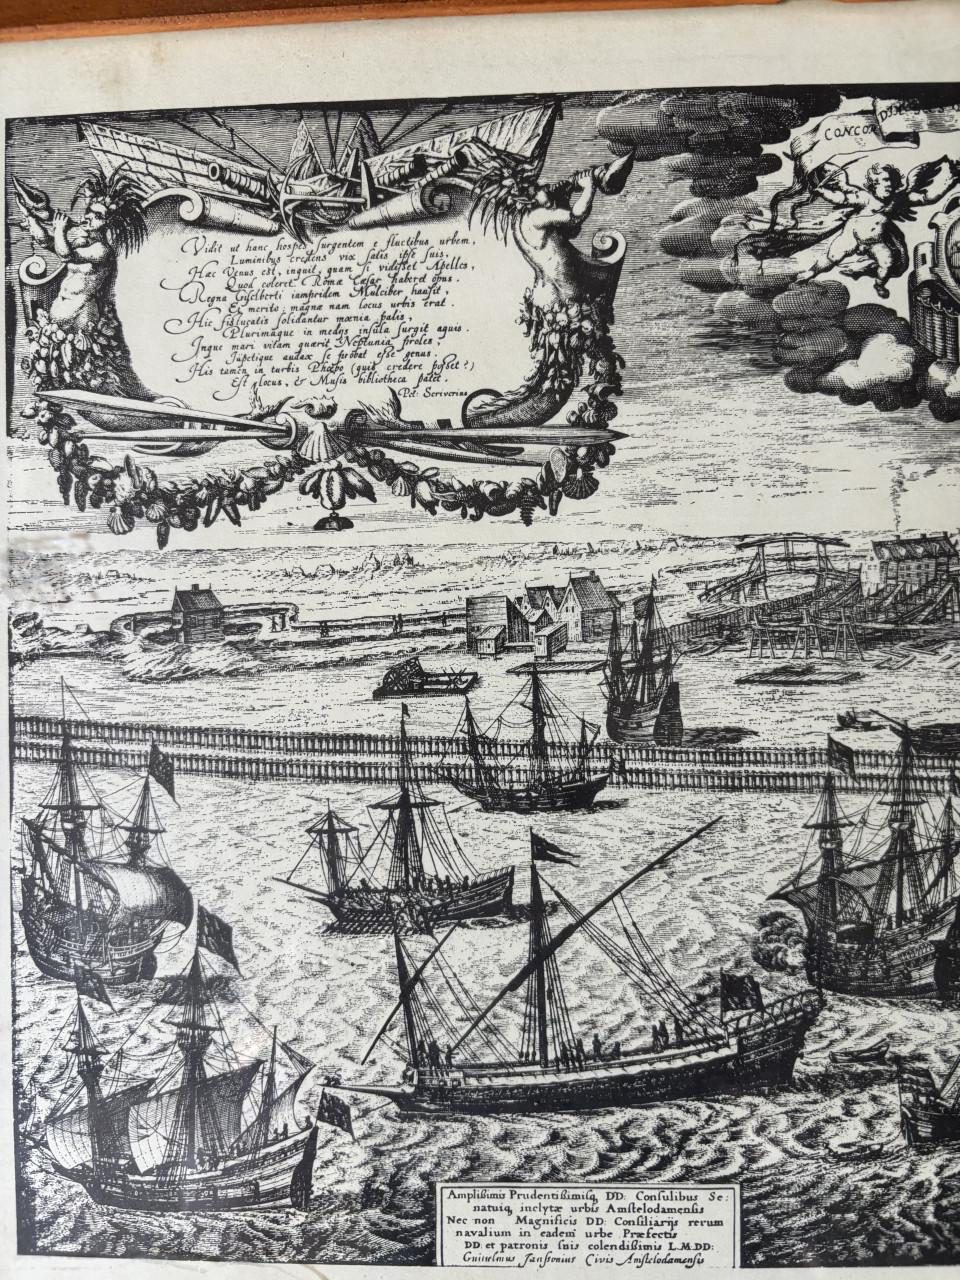 Vidit ut hanc hospes surgentem e fluctibus urbem,
Luminibus credens vix satis ipse suis,
Hæc Venus est, inquit, quam si vidisset Apelles,
Quod coleret Romæ Cæsar haberet opus.
Regna Giselberti iampridem Mulciber hausit,
Et merito: magnæ nam locus urbis erat.
Hic fislucatis solidantur mœnia palis,
Plurimaque in medijs insula surgit aquis.
Inque mari vitam quærit Neptunia proles,
Iäpetique audax se probat esse genus.
His tamen in turbis Phœbo (quis credere posset?)
Est locus, & Musis bibliotheca patet.
Pet: Scriverius
CONCOR
Amplißimis Prudentißimisq, DD: Consulibus Se:
natuiq, inclytæ urbis Amstelodamensis
Nec non Magnificis DD: Consiliarijs rerum
navalium in eadem urbe Præfectis
DD et patronis suis colendißimis L.M.DD:
Guilielmus Janssonius Civis Amstelodamensis